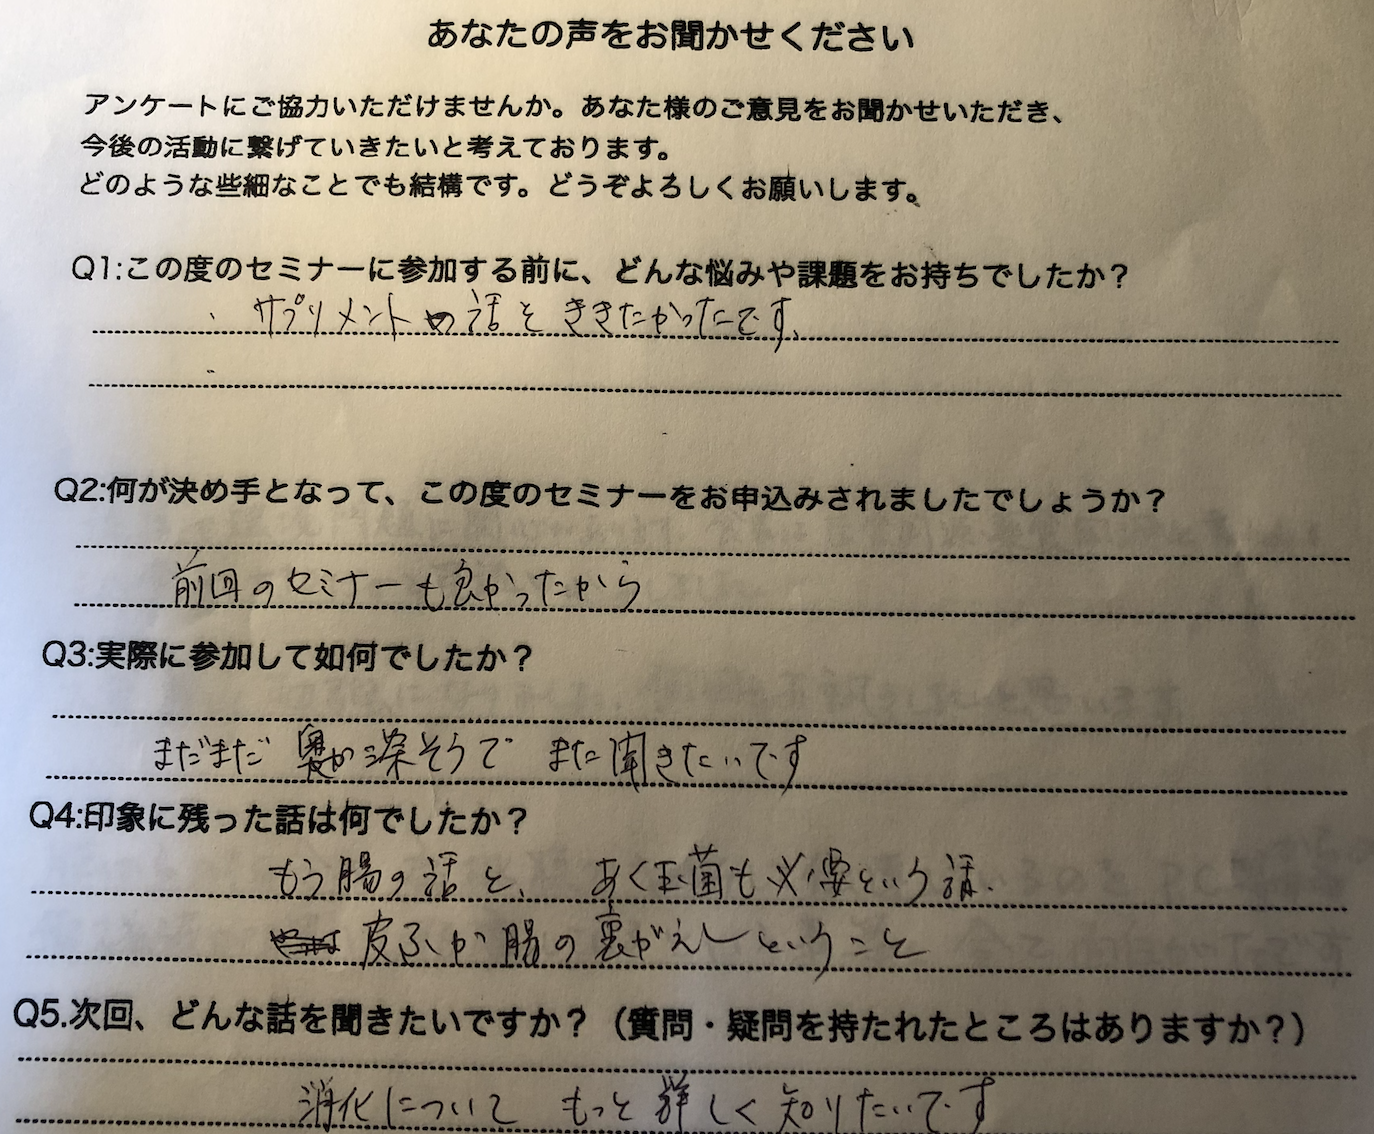 あなたの声をお聞かせください
アンケートにご協力いただけませんか。あなた様のご意見をお聞かせいただき、
今後の活動に繋げていきたいと考えております。
どのような些細なことでも結構です。どうぞよろしくお願いします。
Q1:この度のセミナーに参加する前に、どんな悩みや課題をお持ちでしたか？
サプリメントの話をききたかったです。
Q2:何が決め手となって、この度のセミナーをお申込みされましたでしょうか？
前回のセミナーも良かったから
Q3:実際に参加して如何でしたか？
まだまだ奥が深そうで また聞きたいです
Q4:印象に残った話は何でしたか？
もう腸の話と、 あく玉菌も必要という話.
皮ふが腸の裏がえしということ
Q5.次回、どんな話を聞きたいですか？（質問・疑問を持たれたところはありますか？）
消化について もっと詳しく知りたいです